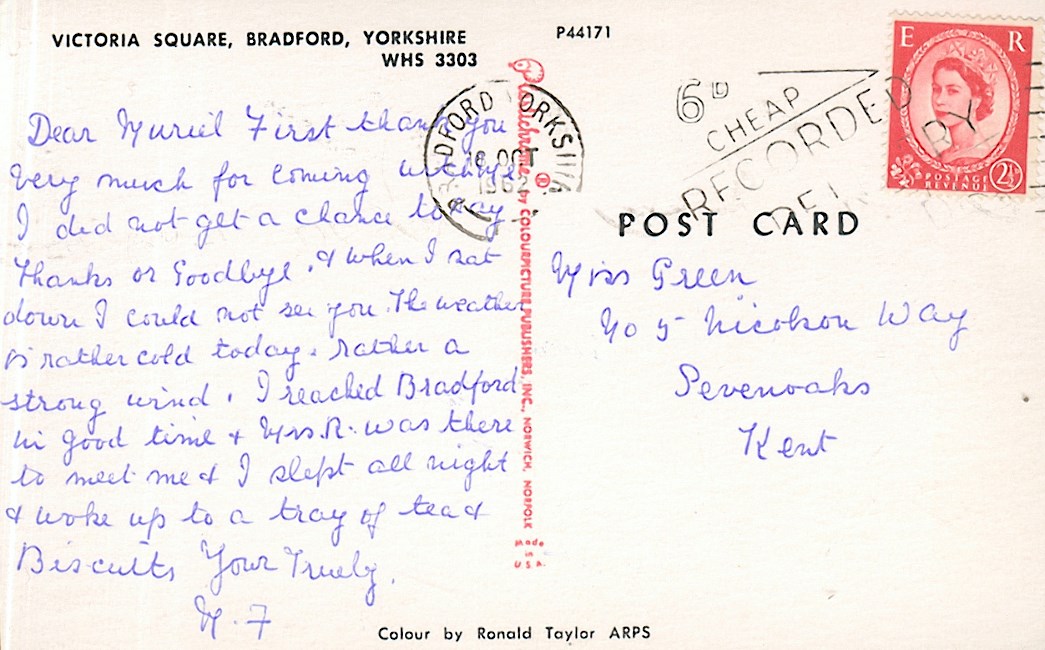 VICTORIA SQUARE, BRADFORD, YORKSHIRE
WHS 3303
P44171
Dear Muriel First thank you
very much for coming with me
I did not get a chance to say
Thanks or Goodbye. & when I sat
down I could not see you. The weather
is rather cold today. rather a
strong wind. I reached Bradford
in good time & Mrs. R. was there
to meet me & I slept all night
& woke up to a tray of tea &
Biscuits Your Truely.
M. F
Plastichrome ® by COLOURPICTURE PUBLISHERS, INC., NORWICH, NORFOLK
Made
in
U.S.A.
BRADFORD YORKSHIRE
18 OCT
1962
6D
CHEAP
RECORDED
E R
POSTAGE
REVENUE
2½
POST CARD
Miss Green
No 5 Nicolson Way
Sevenoaks
Kent
Colour by Ronald Taylor ARPS